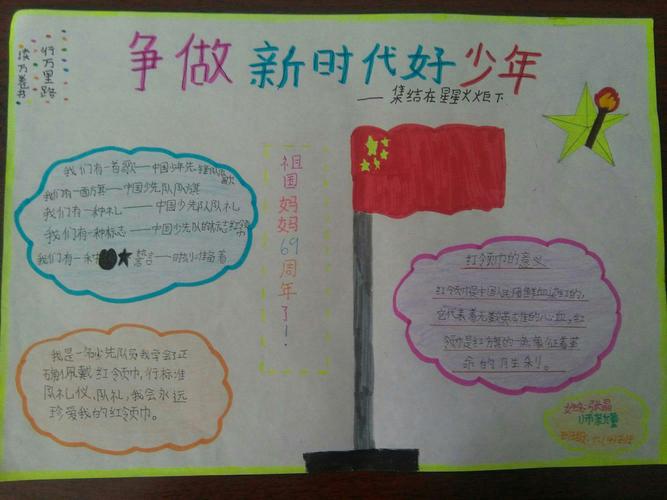 争做新时代好少年
——集结在星星火炬下
读万卷书
行万里路
我们有一首歌——中国少年先锋队队歌
我们有一面旗——中国少先队队旗
我们有一种礼——中国少先队队礼
我们有一种标志——中国少先队的标志红领巾
我们有一种
誓言——时刻准备着
祖国妈妈69周年了!
红领巾的意义
红领巾是中国人民用鲜血染红的,
它代表着无数英雄的心血,红
领巾是红方旗的一角,象征着革
命的月生利。
我是一名少先队员我学会了正
确佩戴红领巾,行标准
队礼仪、队礼,我会永远
珍爱我的红领巾。
姓名:张晶